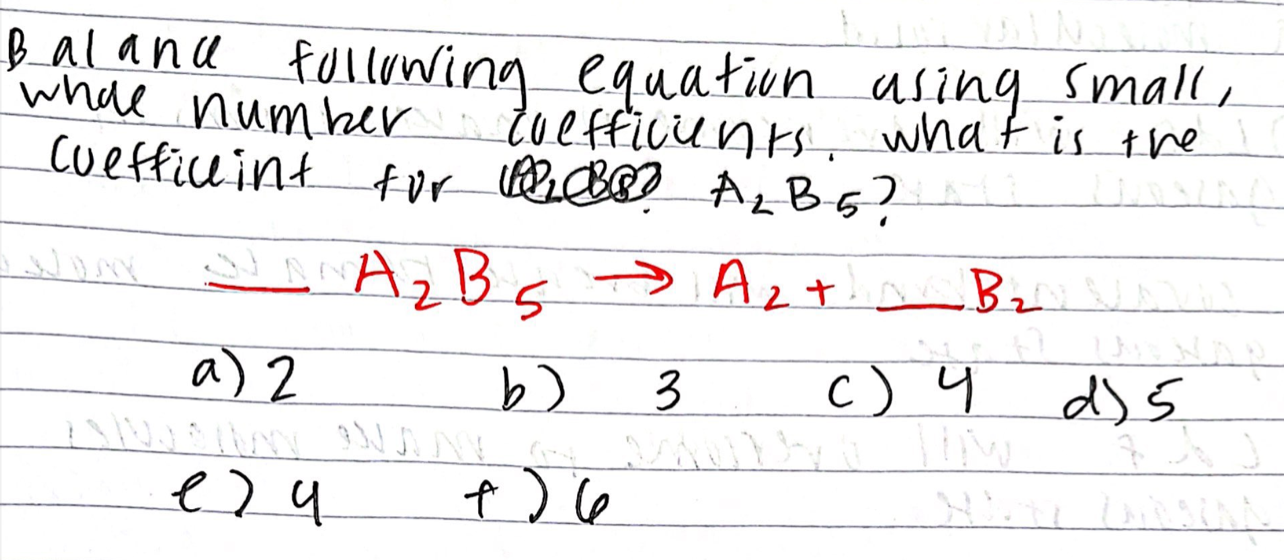 Balance following equation using small,
whole number coefficients. what is the
coefficeint for A₂B₅?
__ A₂B₅ → A₂ + __ B₂
a) 2 b) 3 c) 4 d) 5
e) 4 f) 6